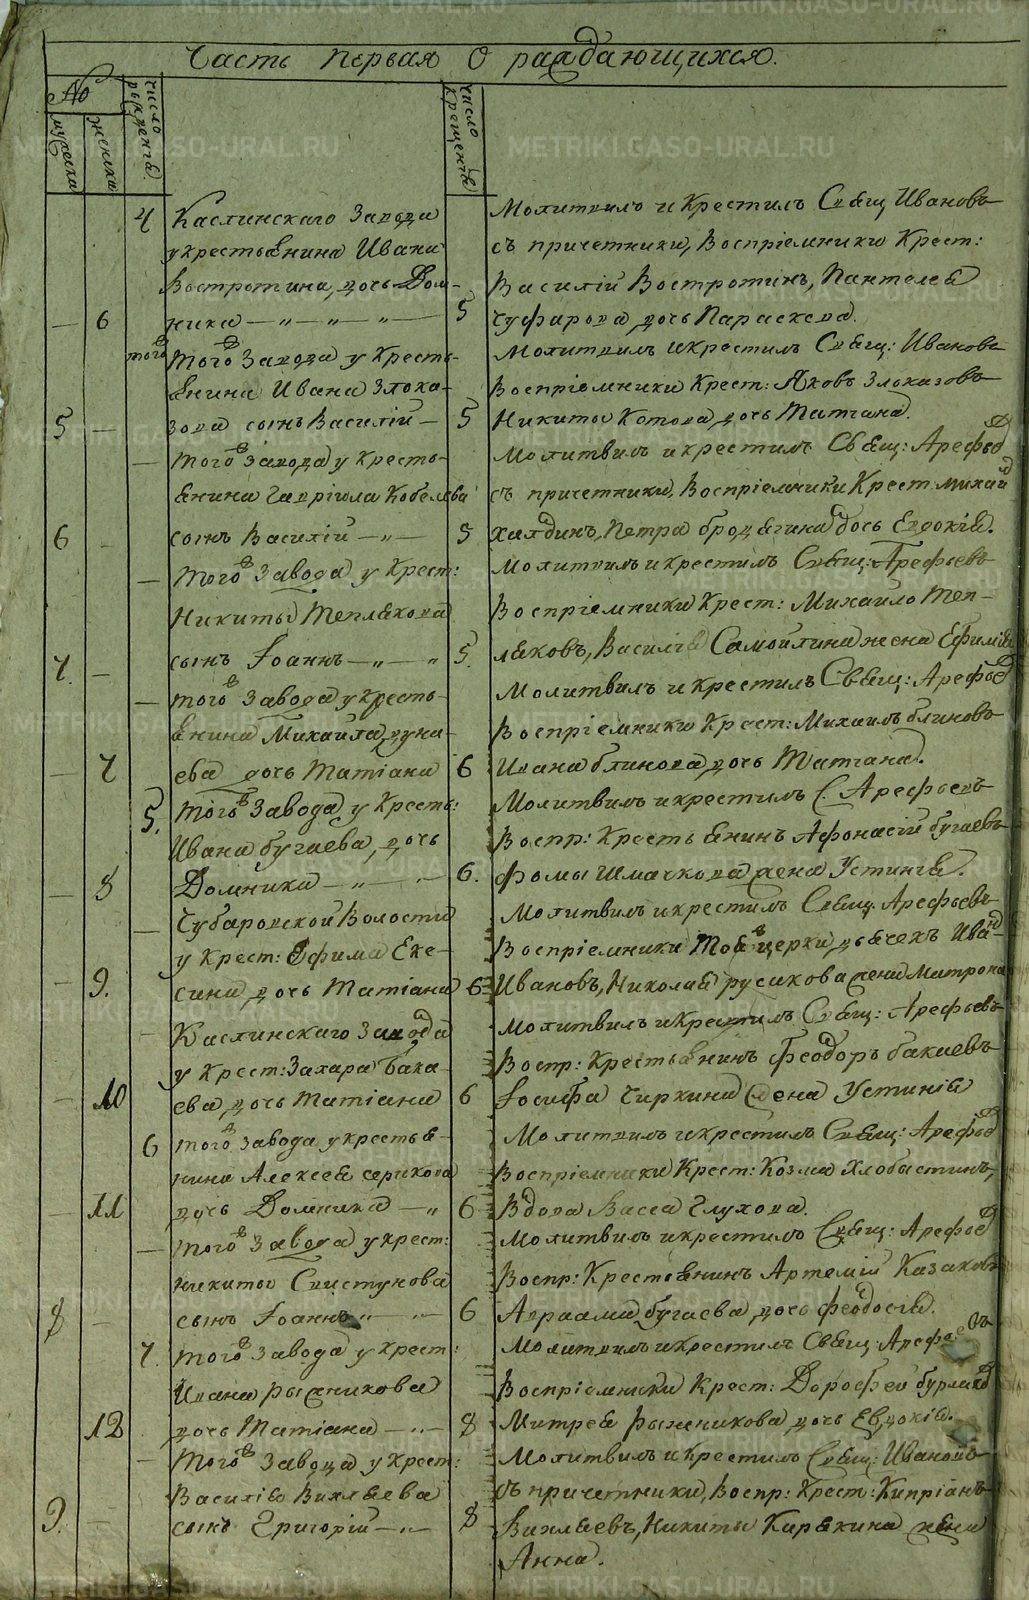 Часть Первая О раждающихся.
№
мужеска
женска
число рожденія
число крещенія
4 Каслинскаго Завода
у крестьянина Ивана
Востротина, дочь Дом-
6 ника 5
Молитвилъ и Крестилъ Свящ Ивановъ
съ причетники, Воспріемники Крест:
Василій Востротинъ, Пантелея
Чуфарова дочь Параскева.
того того Завода у Кресть-
янина Ивана Злока-
5 зова сынъ Василій 5
Молитвилъ и крестилъ Свящ: Ивановъ
Воспріемники Крест: Яковъ Злоказовъ
Никиты Котова дочь Татіана.
того Завода у Кресть-
янина Гавріила Кобелева
6 сынъ Василій 5
Молитвилъ и крестилъ Свящ: Арефьев
съ причетники, Воспріемники Крест Михай
Халдинъ, Петра бродягина дочь Евдокія.
того Завода у Крест:
Никиты Теплякова
7. сынъ Іоаннъ 5.
Молитвилъ и крестилъ Свящ: Арефьевъ
Воспріемники Крест: Михайло Теп-
ляковъ, Василія Самойлина жена Ефимія
того Завода у Кресть-
янина Михаила дуна-
7 ева дочь Татіана 6
Молитвилъ и Крестилъ Свящ: Арефьев
Воспріемники Крест: Михаилъ блиновъ
Ивана блинова, дочь Татіана.
5. того Завода у Кресть:
Ивана бугаева, дочь
8 Домника 6.
Молитвилъ и крестилъ С Арефьевъ
Воспр: Крестьянинъ Афонасій бугаевъ
Фомы Шмачкова жена Устинія.
Чубаровской Волости
у Крест: Ефима Еке-
9. сина, дочь Татіана 6
Молитвилъ и крестилъ Свящ: Арефьевъ
Воспріемники Тоя церкви дьячекъ Иван
Ивановъ, Николая русикова жена Матрона
Каслинскаго Завода
у Крест: Захара бака-
10 ева, дочь Татіана 6
Молитвилъ и Крестилъ Свящ: Арефьевъ
Воспр: Крестьянинъ Феодоръ бакаевъ
Іосифа Чиркина жена Устинія
6 того Завода у крестья-
нина Алексея серикова
11 дочь Домника 6
Молитвилъ и крестилъ Свящ: Арефьев
Воспріемники Крест: Козма Хлобыстинъ,
Вдова Васса Глухова.
того Завода у крест:
никиты Свистунова
8 сынъ Іоаннъ 6
Молитвилъ и крестилъ Свящ: Арефьев
Воспр: Крестьянинъ Артемій Казаковъ
Авраама бугаева, дочь феодосія.
7. того Завода у крест:
Ивана рыжникова
12 дочь Татіана 8
Молитвилъ и крестилъ Свящ: Арефьевъ
Воспріемники Крест: Дорофей бурлаков
Митрея рыженикова дочь Евдокія.
того Завода у Крест:
Василія Вихляева
9. сынъ Григорій 8
Молитвилъ и Крестилъ Свящ: Ивановъ
съ причетники, Воспр: Крест: Кипріанъ
Вихляевъ, Никиты Кирякина жена
Анна.